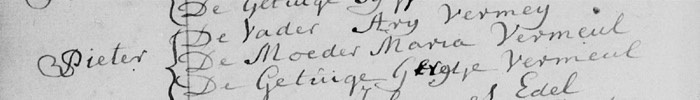 De Getuige
De Vader Ary Vermey
Pieter De Moeder Maria Vermeul
De Getuige Vermeul
Edel